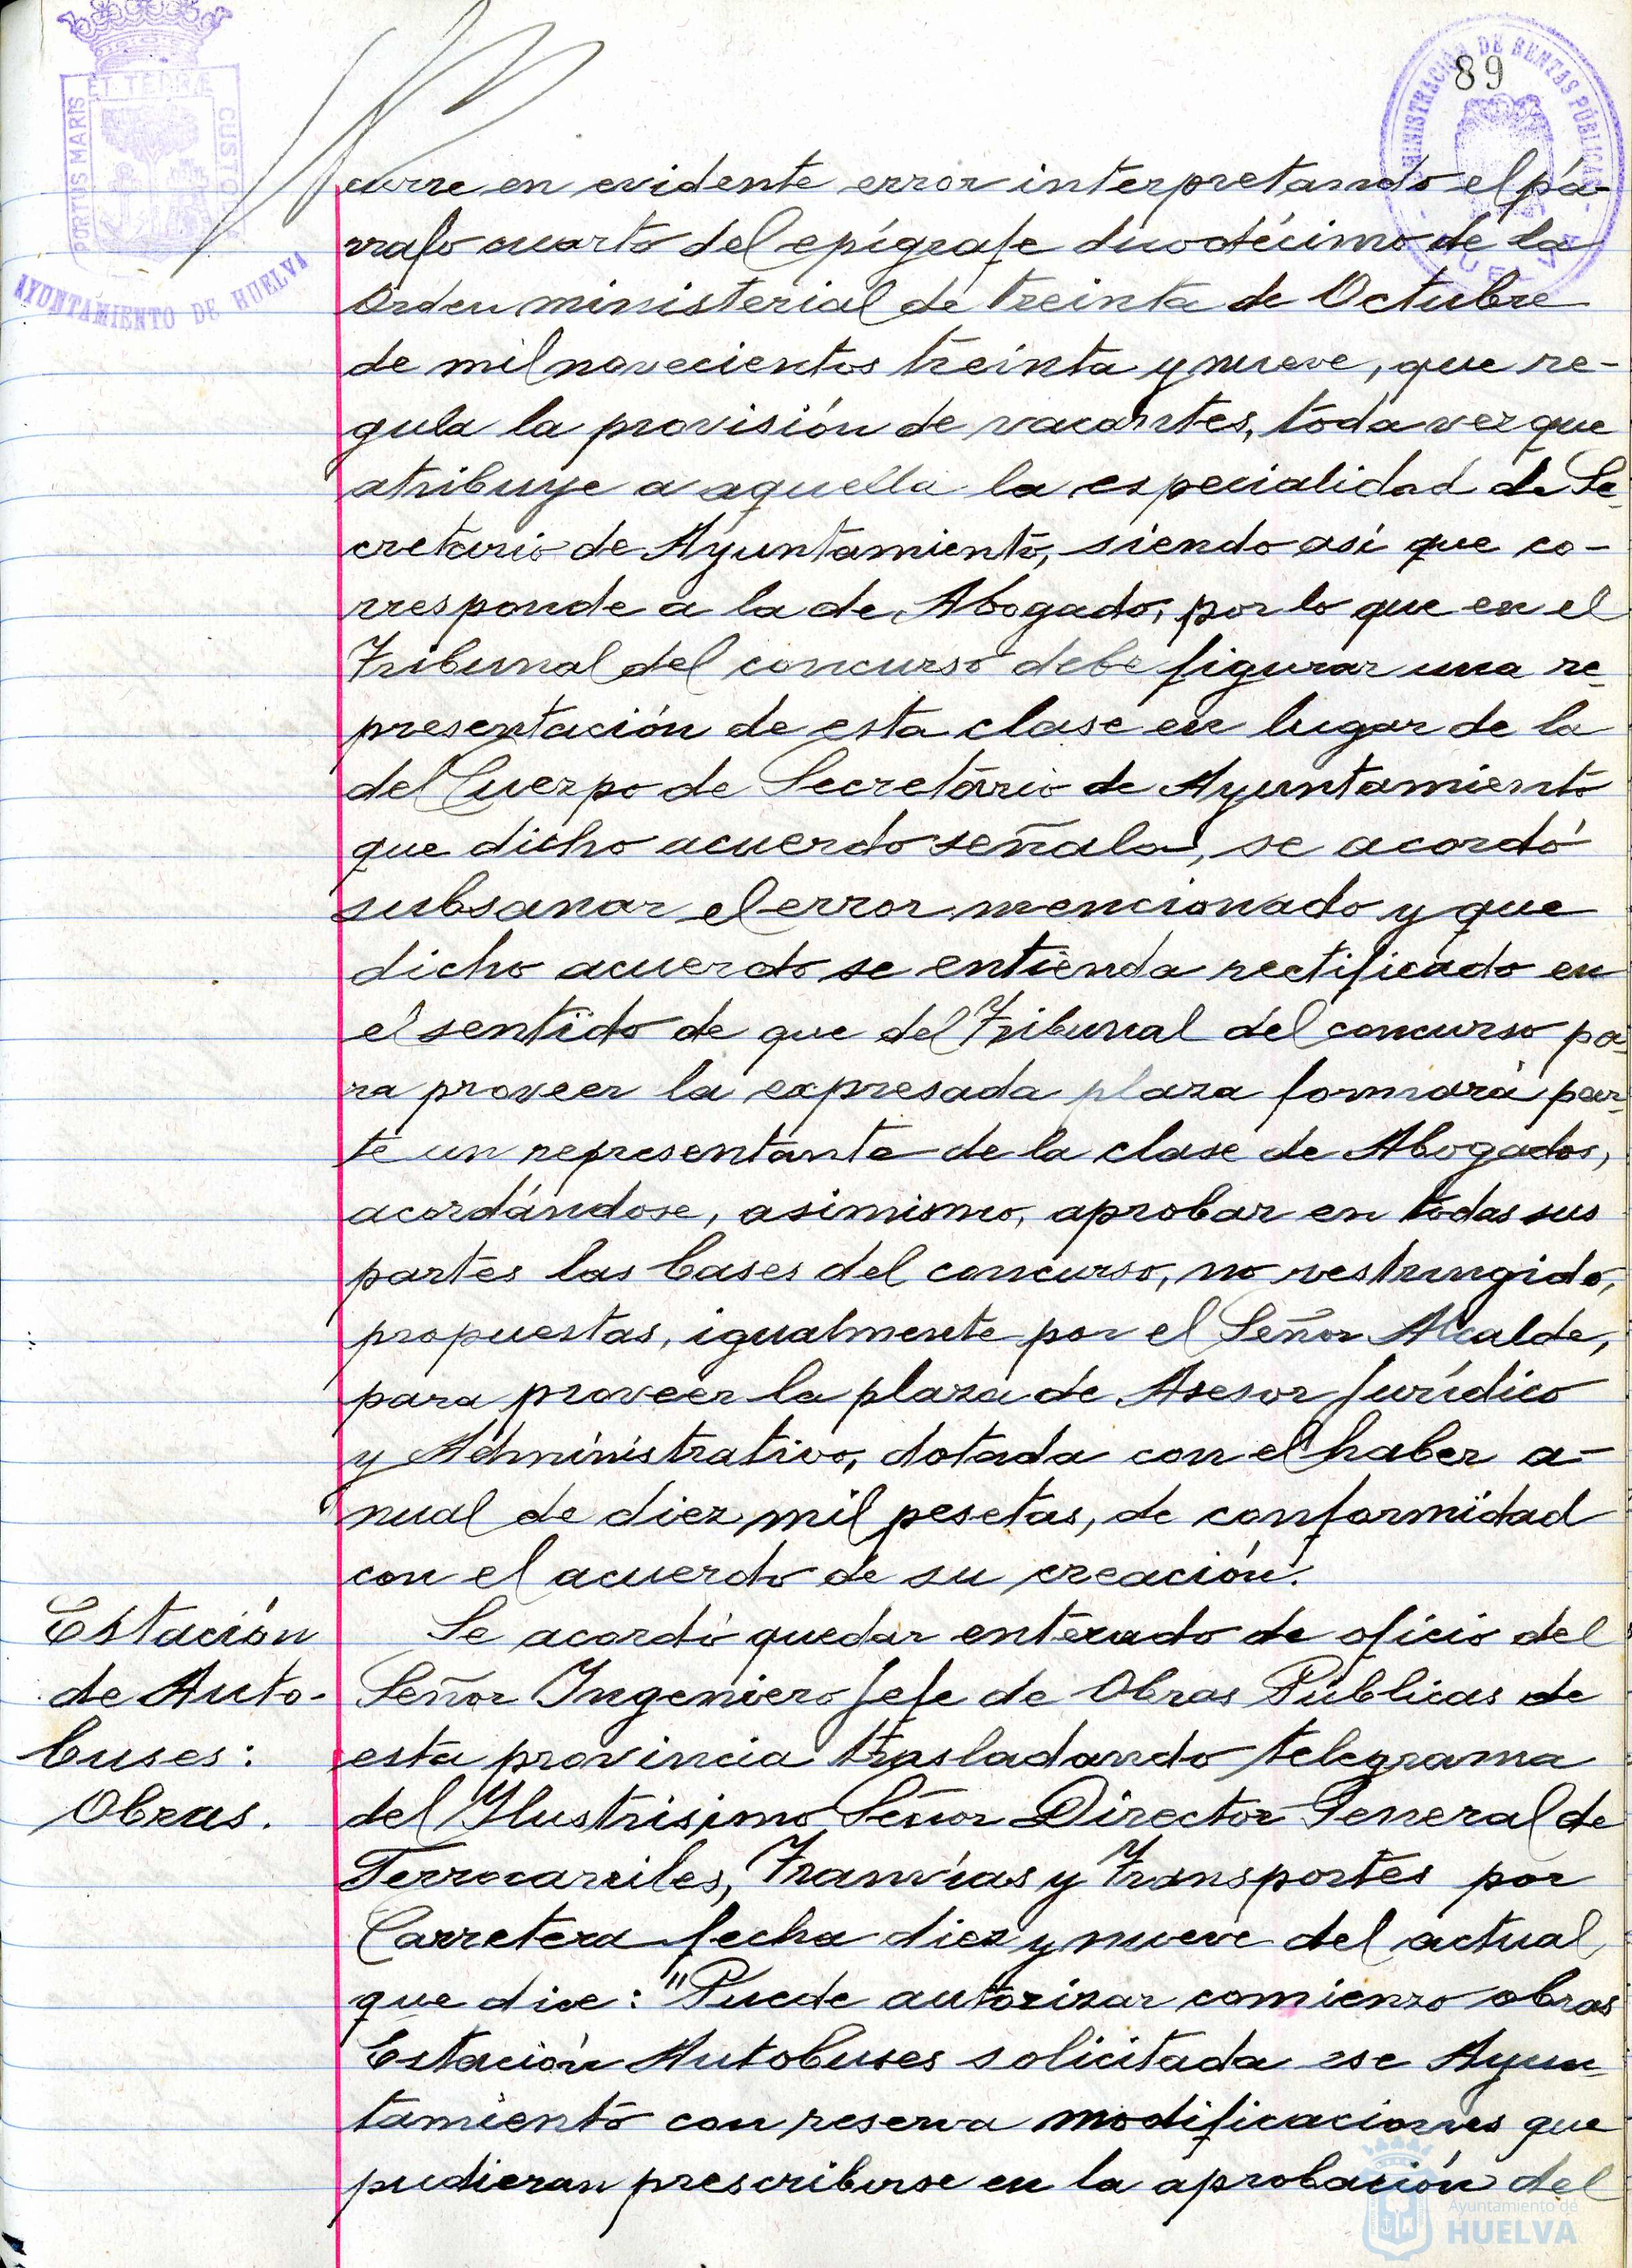 89
PORTUS MARIS ET TERRÆ CUSTO
AYUNTAMIENTO DE HUELVA
MINISTRACIÓN DE RENTAS PÚBLICAS
curre en evidente error interpretando el pá-
rrafo cuarto del epígrafe duodécimo de la
Orden ministerial de treinta de Octubre
de mil novecientos treinta y nueve, que re-
gula la provisión de vacantes, toda vez que
atribuye a aquella la especialidad de Se-
cretario de Ayuntamiento, siendo así que co-
rresponde a la de Abogado, por lo que en el
Tribunal del concurso debe figurar una re-
presentación de esta clase en lugar de la
del Cuerpo de Secretario de Ayuntamiento
que dicho acuerdo señala, se acordó
subsanar el error mencionado y que
dicho acuerdo se entienda rectificado en
el sentido de que del Tribunal del concurso pa-
ra proveer la expresada plaza formará par-
te un representante de la clase de Abogados,
acordándose, asimismo, aprobar en todas sus
partes las bases del concurso, no restringido,
propuestas, igualmente por el Señor Alcalde,
para proveer la plaza de Asesor Jurídico
y Administrativo, dotada con el haber a-
nual de diez mil pesetas, de conformidad
con el acuerdo de su creación.
Estación
de Auto-
buses:
Obras.
Se acordó quedar enterado de oficio del
Señor Ingeniero Jefe de Obras Públicas de
esta provincia trasladando telegrama
del Ilustrisimo Señor Director General de
Ferrocarriles, Tranvías y Transportes por
Carretera fecha diez y nueve del actual
que dice: "Puede autorizar comienzo obras
Estación Autobuses solicitada ese Ayun-
tamiento con reserva modificaciones que
pudieran prescribirse en la aprobación del
Ayuntamiento de
HUELVA